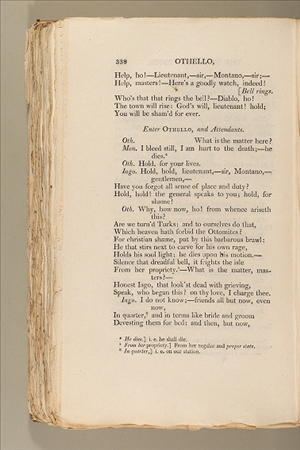 338 OTHELLO,
Help, ho!—Lieutenant,—sir,—Montano,—sir;—
Help, masters!—Here's a goodly watch, indeed!
[Bell rings.
Who's that that rings the bell?—Diablo, ho!
The town will rise: God's will, lieutenant! hold;
You will be sham'd for ever.
Enter OTHELLO, and Attendants.
Oth. What is the matter here?
Mon. I bleed still, I am hurt to the death;—he
dies.⁴
Oth. Hold, for your lives.
Iago. Hold, hold, lieutenant,—sir, Montano,—
gentlemen,—
Have you forgot all sense of place and duty?
Hold, hold! the general speaks to you; hold, for
shame!
Oth. Why, how now, ho! from whence ariseth
this?
Are we turn'd Turks; and to ourselves do that,
Which heaven hath forbid the Ottomites?
For christian shame, put by this barbarous brawl:
He that stirs next to carve for his own rage,
Holds his soul light; he dies upon his motion.—
Silence that dreadful bell, it frights the isle
From her propriety.⁵—What is the matter, mas-
ters?—
Honest Iago, that look'st dead with grieving,
Speak, who began this? on thy love, I charge thee.
Iago. I do not know;—friends all but now, even
now,
In quarter,⁶ and in terms like bride and groom
Devesting them for bed: and then, but now,
⁴ He dies.] i. e. he shall die.
⁵ From her propriety.] From her regular and proper state.
⁶ In quarter,] i. e. on our station.